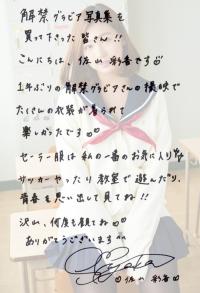 解禁グラビア写真集を
買って下さった皆さん!!
こんにちは、佐山彩香です
1年ぶりの解禁グラビアさんの撮影で
たくさんの衣装が着られて
楽しかったです
セーラー服は私の一番のお気に入り
サッカーやったり教室で遊んだり、
青春を思い出して見てね!!
沢山、何度も観てね
ありがとうございます
佐山彩香